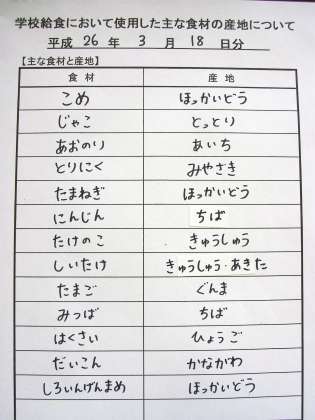 学校給食において使用した主な食材の産地について
平成 26 年 3 月 18 日分
【主な食材と産地】
食材 産地
こめ ほっかいどう
じゃこ とっとり
あおのり あいち
とりにく みやざき
たまねぎ ほっかいどう
にんじん ちば
たけのこ きゅうしゅう
しいたけ きゅうしゅう・あきた
たまご ぐんま
みつば ちば
はくさい ひょうご
だいこん かながわ
しろいんげんまめ ほっかいどう